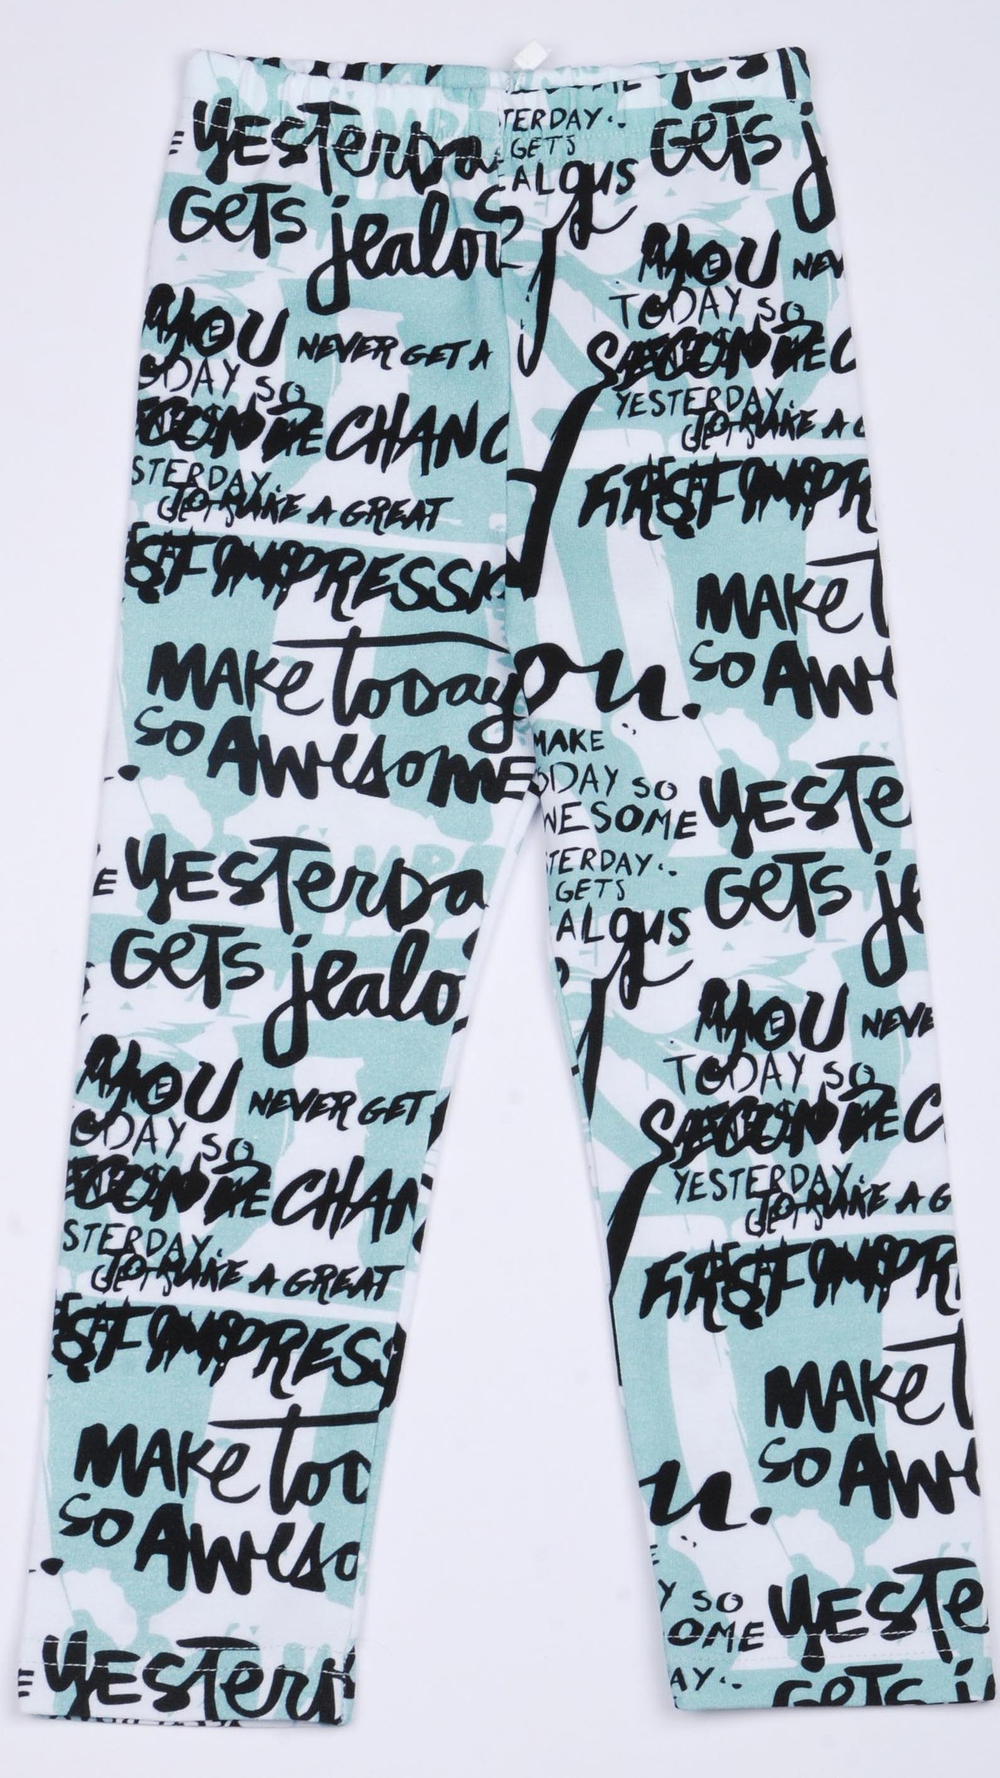 Yesterda
GETS jealou
YOU NEVER GET A
DAY SO
CHANC
STERDAY
TO MAKE A GREAT
ST IMPRESSI
MAKE today
SO AWesomE
YESTerDa
GETS jealo
YOU NEVER GET
DAY SO
CHAN
STERDAY.
TO MAKE A GREAT
ST IMPRESS
MAKE Tod
SO AWeso
YESTer
TERDAY..
GETS
EALOUS
GETS j
YOU NEV
TODAY SO
SECOND
YESTERDAY.
TO MAKE A G
FIRST IMPR
MAKE T
SO AWe
ou.
MAKE
ODAY SO
WESOME
YESTe
TERDAY..
GETS
ALOUS
GETS je
YOU NEVE
TODAY SO
SECOND
YESTERDAY.
TO MAKE A G
FIRST IMPR
MAKE T
SO AWe
u.
Y SO
OME
YESTe
AY..
GETS j